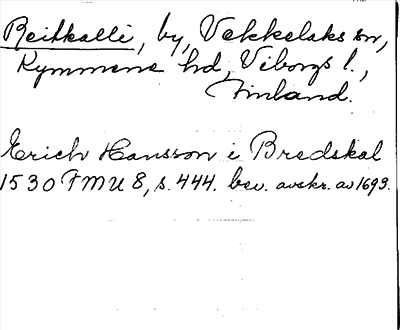 Reitkalli, by, Vekkelaks sn,
Kymmene hd, Viborgs l.,
Finland.
Erich Hansson i Bredskal
1530 FMU 8, s. 444. bev. avskr. av 1693.